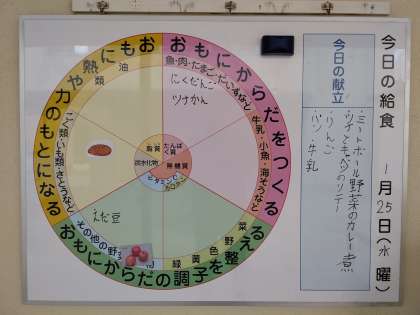 今日の給食
1月25日(水曜)
今日の献立
・ミートボール野菜のカレー煮
・ツナとキャベツのソテー
・りんご
・パン・牛乳
おもにからだをつくる
魚・肉・たまご・だいずなど
にくだんご
ツナかん
牛乳・小魚・海そうなど
おもにからだの調子を整える
緑黄色野菜
その他の野
えだ豆
おもに熱や力のもとになる
こく類・いも類・さとうなど
油類
脂質
たんぱく質
炭水化物
無機質
ビタミンC
カロテン